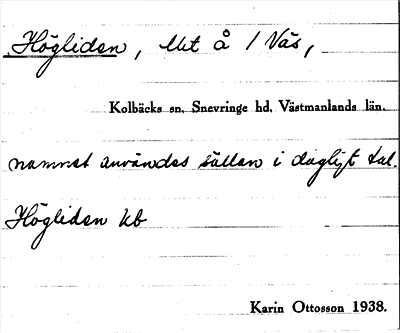 Högliden, lht å 1 Väs,
Kolbäcks sn, Snevringe hd, Västmanlands län.
namnet användes sällan i dagligt tal.
Högliden kb
Karin Ottosson 1938.